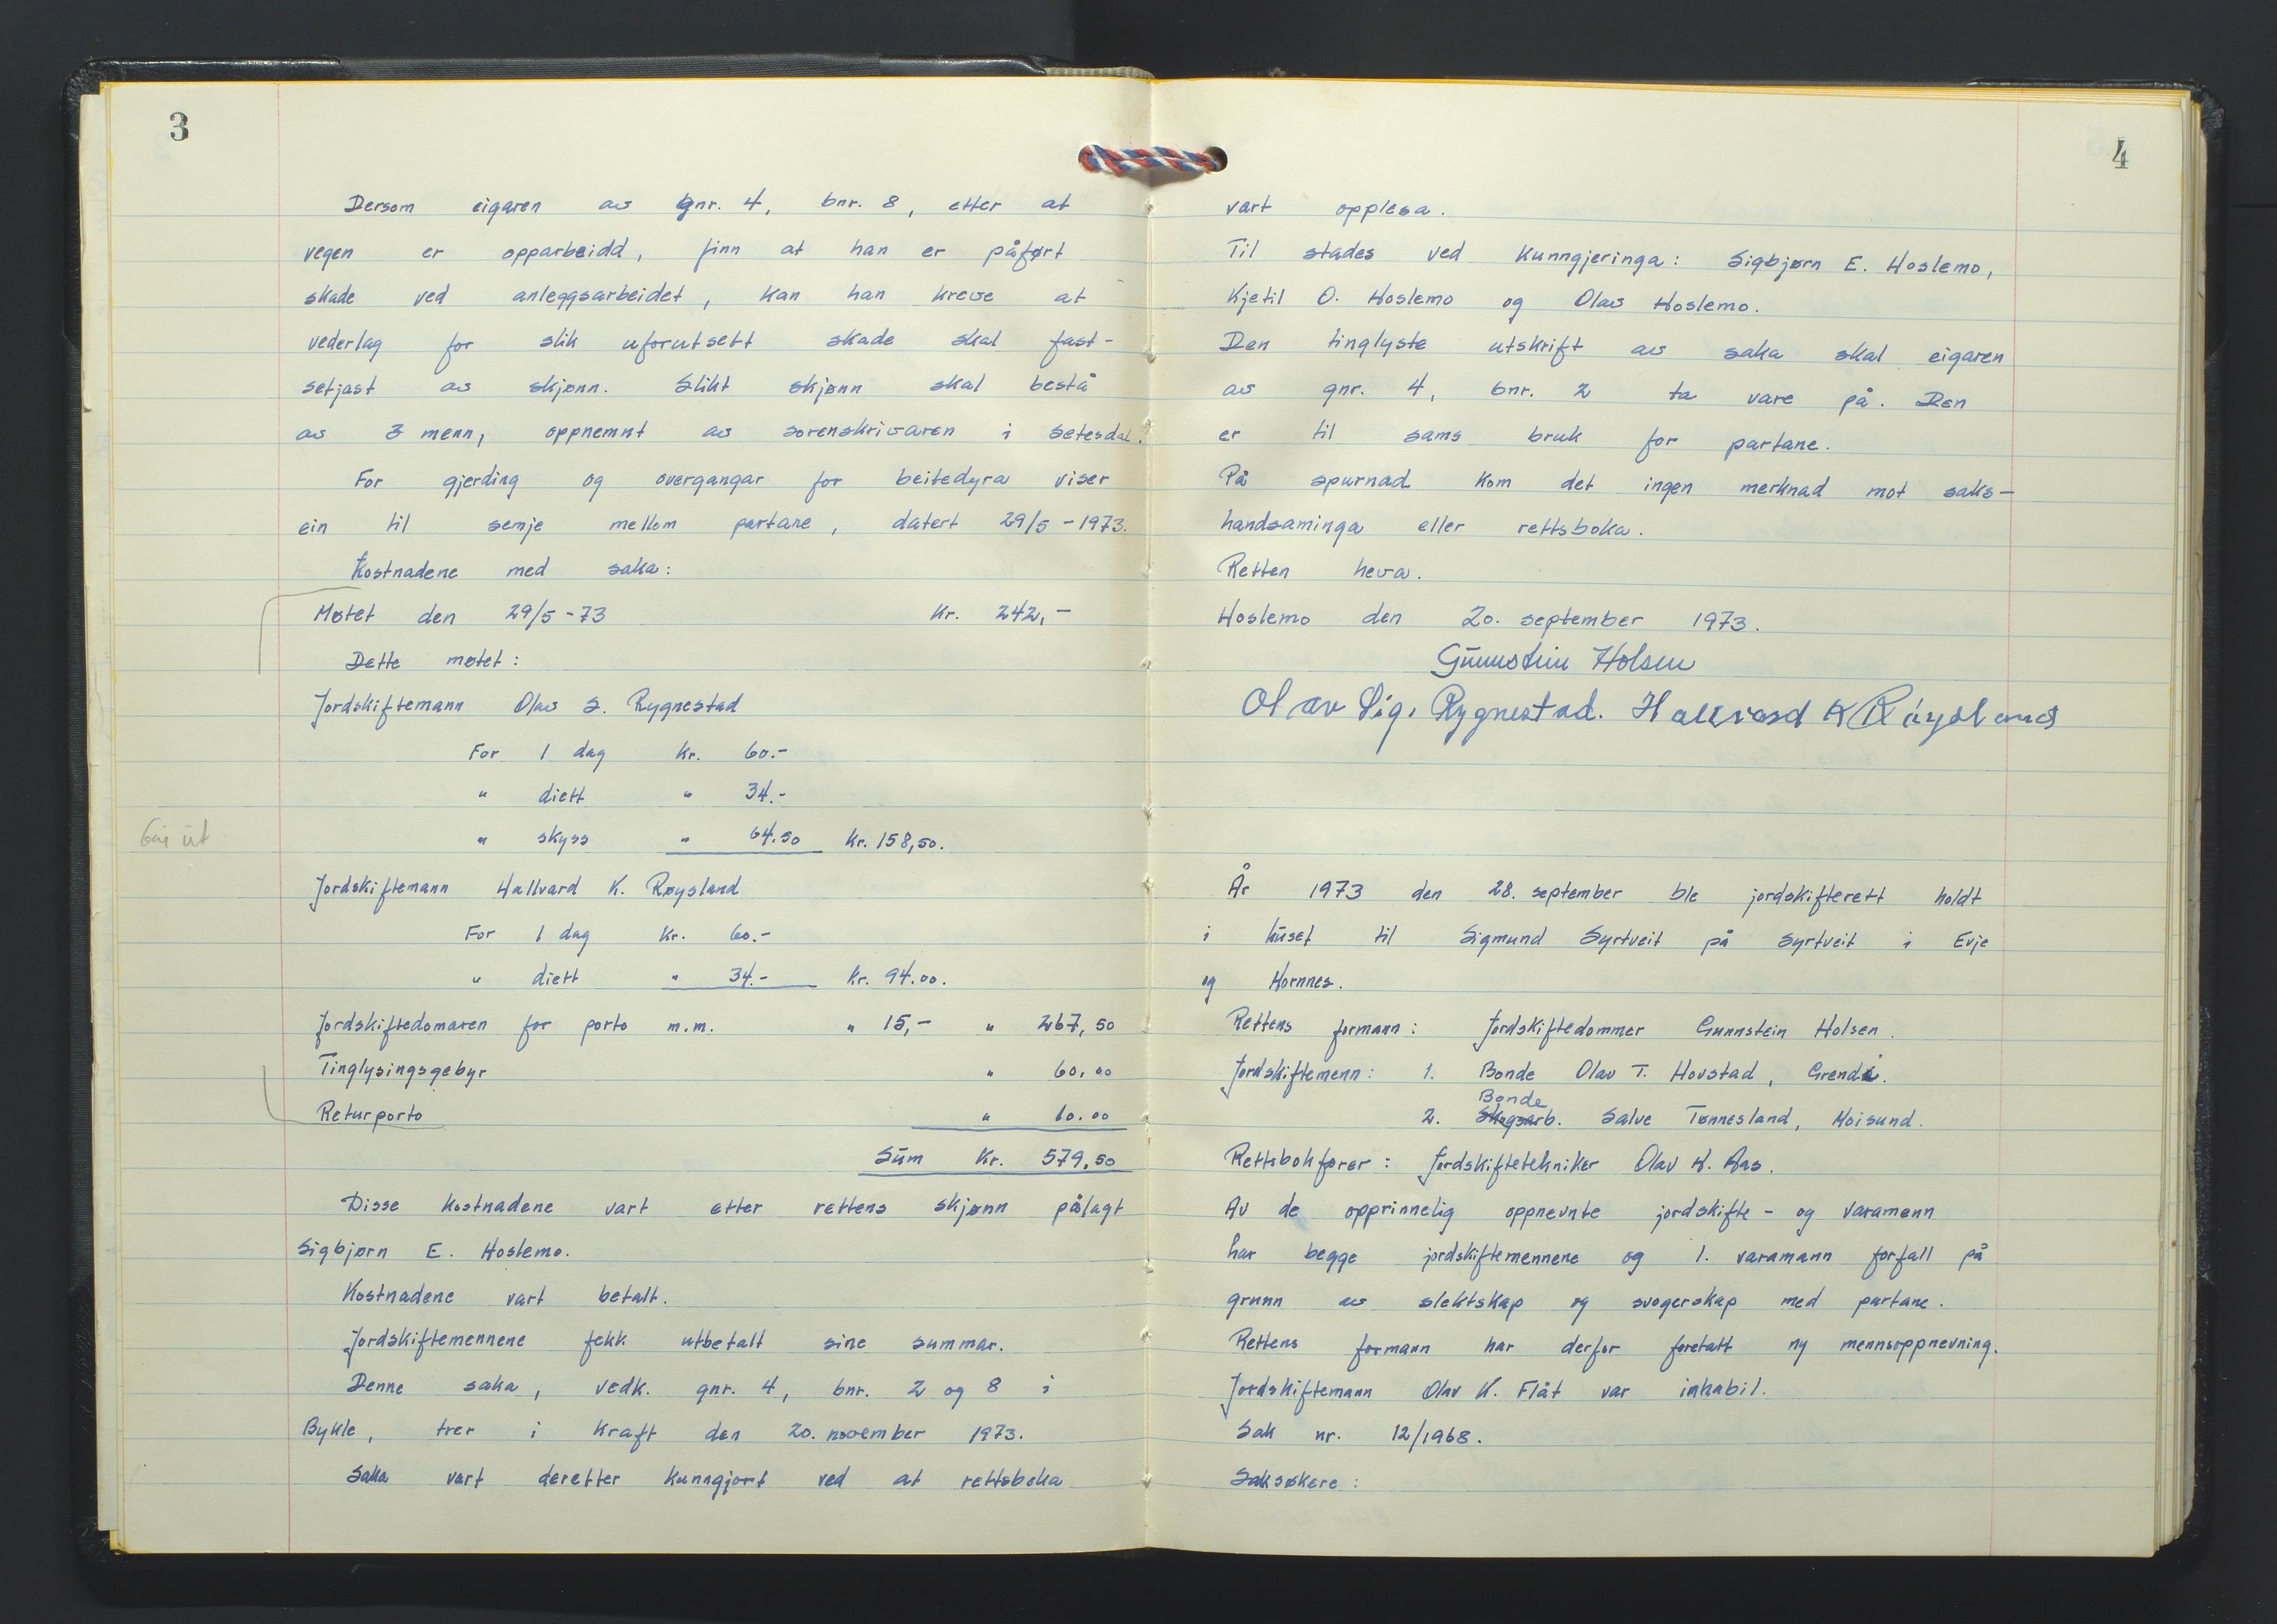 3
Dersom eigaren av gnr. 4, bnr. 8, etter at
vegen er opparbeidd, finn at han er påført
skade ved anleggsarbeidet, kan han kreve at
vederlag for slik uforutsett skade skal fast-
setjast av skjønn. Slikt skjønn skal bestå
av 3 menn, oppnemnt av sorenskrivaren i Setesdal.
For gjerding og overgangar for beitedyra viser
ein til semje mellom partane, datert 29/5-1973.
Kostnadene med saka:
Møtet den 29/5-73 Kr. 242,-
Dette møtet:
Jordskiftemann Olav S. Rygnestad
For 1 dag Kr. 60.-
" diett " 34.-
" skyss " 64.50 Kr. 158,50.
Jordskiftemann Hallvard K. Røysland
For 1 dag Kr. 60.-
" diett " 34.- Kr. 94.00.
Jordskiftedomaren for porto m.m. " 15,- " 267,50
Tinglysingsgebyr " 60,00
Returporto " 10.00
Sum Kr. 579,50
Disse kostnadene vart etter rettens skjønn pålagt
Sigbjørn E. Hoslemo.
Kostnadene vart betalt.
Jordskiftemennene fekk utbetalt sine summar.
Denne saka, vedk. gnr. 4, bnr. 2 og 8 i
Bykle, trer i kraft den 20. november 1973.
Saka vart deretter kunngjort ved at rettsboka
4
vart opplesa.
Til stades ved kunngjeringa: Sigbjørn E. Hoslemo,
Kjetil O. Hoslemo og Olav Hoslemo.
Den tinglyste utskrift av saka skal eigaren
av gnr. 4, bnr. 2 ta vare på. Den
er til sams bruk for partane.
På spurnad kom det ingen merknad mot saks-
handsaminga eller rettsboka.
Retten heva.
Hoslemo den 20. september 1973.
Gunnstein Holsen
Olav Sig. Rygnestad. Hallvard K Røysland
År 1973 den 28. september ble jordskifterett holdt
i huset til Sigmund Syrtveit på Syrtveit i Evje
og Hornnes.
Rettens formann: Jordskiftedommer Gunnstein Holsen.
Jordskiftemenn: 1. Bonde Olav T. Hovstad, Grendi.
Bonde
2. Skogsarb. Salve Tønnesland, Hoisund.
Rettsbokfører: Jordskiftetekniker Olav K. Aas.
Av de opprinnelig oppnevnte jordskifte- og varamenn
har begge jordskiftemennene og 1. varamann forfall på
grunn av slektskap og svogerskap med partane.
Rettens formann har derfor foretatt ny mennsoppnevning.
Jordskiftemann Olav K. Flåt var inhabil.
Sak nr. 12/1968.
Saksøkere: